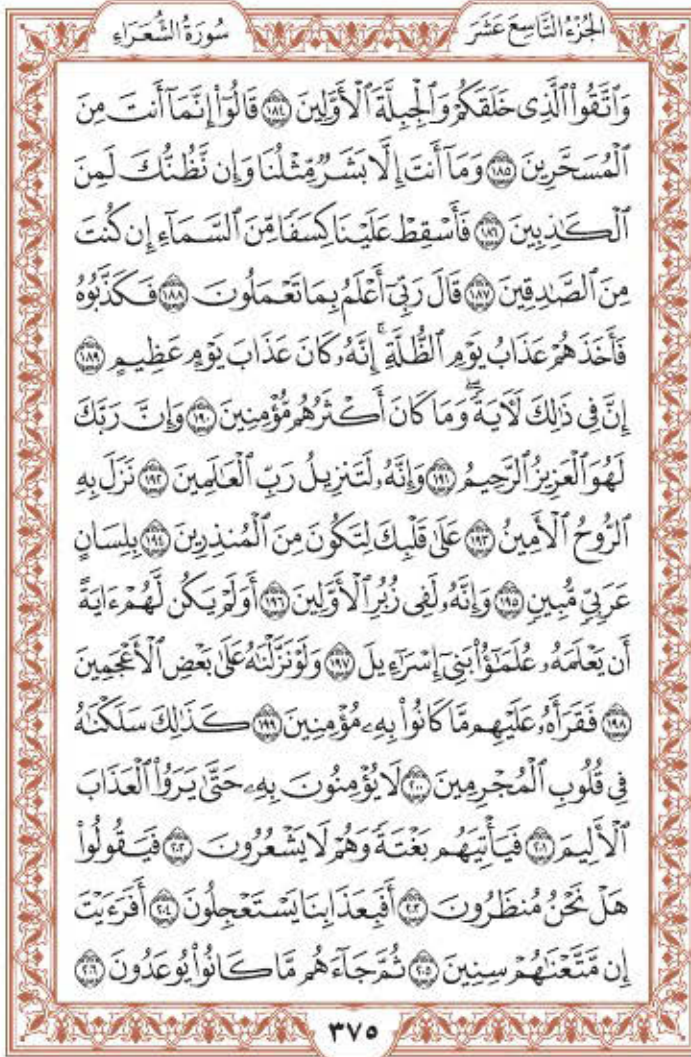 الجُزْءُ التَّاسِعَ عَشَرَ
سُورَةُ الشُّعَرَاءِ
وَٱتَّقُوا۟ ٱلَّذِى خَلَقَكُمْ وَٱلْجِبِلَّةَ ٱلْأَوَّلِينَ ١٨٤ قَالُوٓا۟ إِنَّمَآ أَنتَ مِنَ
ٱلْمُسَحَّرِينَ ١٨٥ وَمَآ أَنتَ إِلَّا بَشَرٌ مِّثْلُنَا وَإِن نَّظُنُّكَ لَمِنَ
ٱلْكَـٰذِبِينَ ١٨٦ فَأَسْقِطْ عَلَيْنَا كِسَفًا مِّنَ ٱلسَّمَآءِ إِن كُنتَ
مِنَ ٱلصَّـٰدِقِينَ ١٨٧ قَالَ رَبِّىٓ أَعْلَمُ بِمَا تَعْمَلُونَ ١٨٨ فَكَذَّبُوهُ
فَأَخَذَهُمْ عَذَابُ يَوْمِ ٱلظُّلَّةِ ۚ إِنَّهُۥ كَانَ عَذَابَ يَوْمٍ عَظِيمٍ ١٨٩
إِنَّ فِى ذَٰلِكَ لَـَٔايَةً ۖ وَمَا كَانَ أَكْثَرُهُم مُّؤْمِنِينَ ١٩٠ وَإِنَّ رَبَّكَ
لَهُوَ ٱلْعَزِيزُ ٱلرَّحِيمُ ١٩١ وَإِنَّهُۥ لَتَنزِيلُ رَبِّ ٱلْعَـٰلَمِينَ ١٩٢ نَزَلَ بِهِ
ٱلرُّوحُ ٱلْأَمِينُ ١٩٣ عَلَىٰ قَلْبِكَ لِتَكُونَ مِنَ ٱلْمُنذِرِينَ ١٩٤ بِلِسَانٍ
عَرَبِىٍّ مُّبِينٍ ١٩٥ وَإِنَّهُۥ لَفِى زُبُرِ ٱلْأَوَّلِينَ ١٩٦ أَوَلَمْ يَكُن لَّهُمْ ءَايَةً
أَن يَعْلَمَهُۥ عُلَمَـٰٓؤُا۟ بَنِىٓ إِسْرَٰٓءِيلَ ١٩٧ وَلَوْ نَزَّلْنَـٰهُ عَلَىٰ بَعْضِ ٱلْأَعْجَمِينَ
١٩٨ فَقَرَأَهُۥ عَلَيْهِم مَّا كَانُوا۟ بِهِۦ مُؤْمِنِينَ ١٩٩ كَذَٰلِكَ سَلَكْنَـٰهُ
فِى قُلُوبِ ٱلْمُجْرِمِينَ ٢٠٠ لَا يُؤْمِنُونَ بِهِۦ حَتَّىٰ يَرَوُا۟ ٱلْعَذَابَ
ٱلْأَلِيمَ ٢٠١ فَيَأْتِيَهُم بَغْتَةً وَهُمْ لَا يَشْعُرُونَ ٢٠٢ فَيَقُولُوا۟
هَلْ نَحْنُ مُنظَرُونَ ٢٠٣ أَفَبِعَذَابِنَا يَسْتَعْجِلُونَ ٢٠٤ أَفَرَءَيْتَ
إِن مَّتَّعْنَـٰهُمْ سِنِينَ ٢٠٥ ثُمَّ جَآءَهُم مَّا كَانُوا۟ يُوعَدُونَ ٢٠٦
٣٧٥